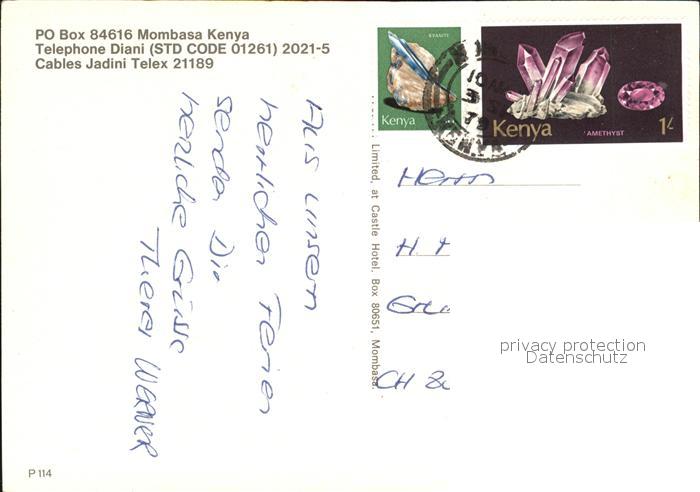 PO Box 84616 Mombasa Kenya
Telephone Diani (STD CODE 01261) 2021-5
Cables Jadini Telex 21189
KYANITE
Kenya
Kenya
AMETHYST
1/-
Aus unsern
herrlichen Ferien
senden Dir
herzliche Grüsse
WERNER
Limited, at Castle Hotel, Box 80651, Mombasa.
Herrn
H.
CH
privacy protection
Datenschutz
P 114